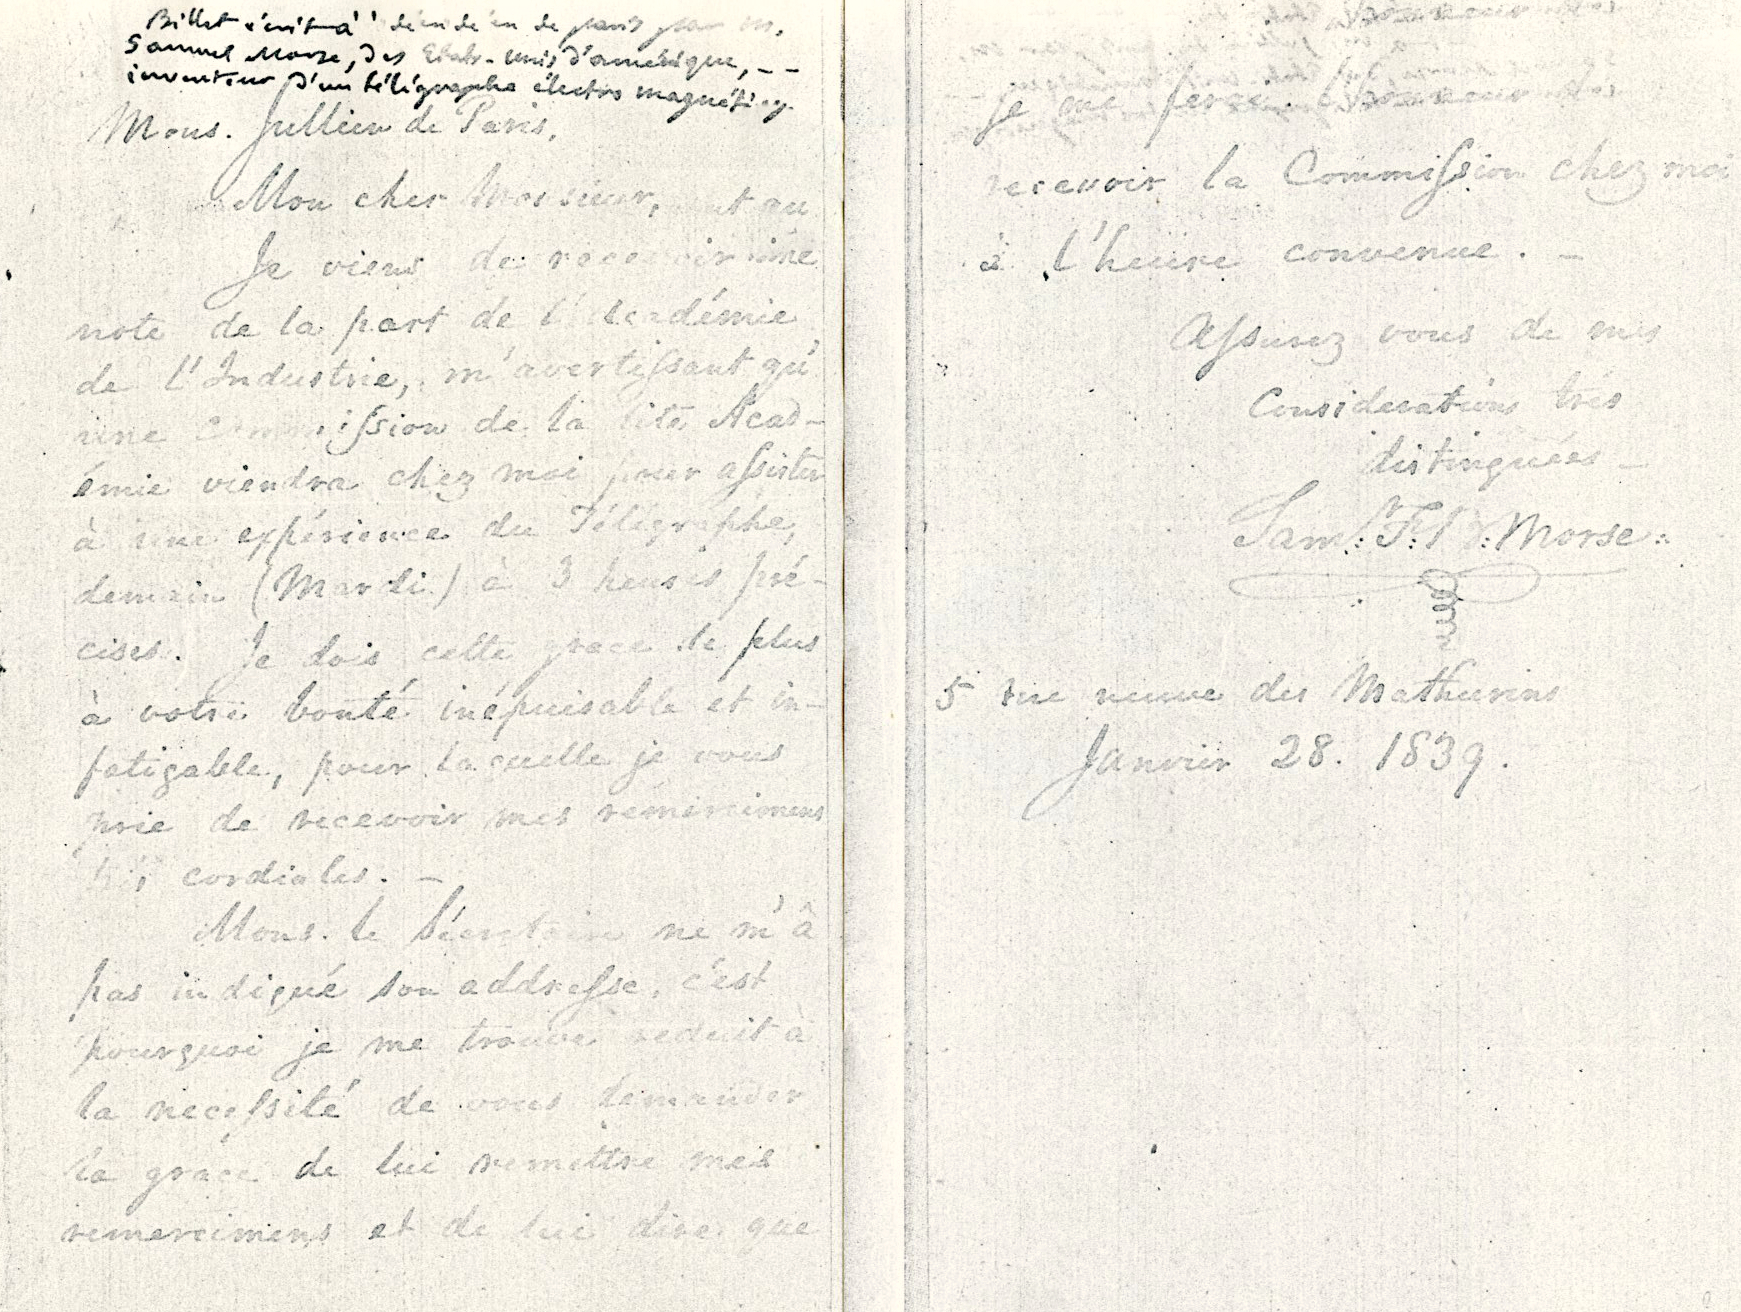 Billet écrit à de paris par m.
Samuel Morse, des Etats-unis d'amérique, - -
inventeur d'un télégraphe électro magnétiq.
Mons. Jullien de Paris,
Mon cher Monsieur,
Je viens de recevoir une
note de la part de l'Académie
de l'Industrie, m'avertissant qu'
une commission de la dite Acad-
émie viendra chez moi pour assister
à une expérience du Télégraphe,
demain (Mardi) à 3 heures pré-
cises. Je dois cette grace de plus
à votre bonté inépuisable et in-
fatigable, pour laquelle je vous
prie de recevoir mes remercimens
très cordiales. —
Mons. le Sécretaire ne m'â
pas indiqué son addresse, c'est
pourquoi je me trouve reduit à
la necessité de vous demander
la grace de lui remettre mes
remercimens et de lui dire que
je me ferai
recevoir la Commission chez moi
à l'heure convenue. —
Assurez vous de mes
Considerations très
distinguées —
Sam: F: B: Morse.
5 rue neuve des Mathurins
Janvier 28. 1839.